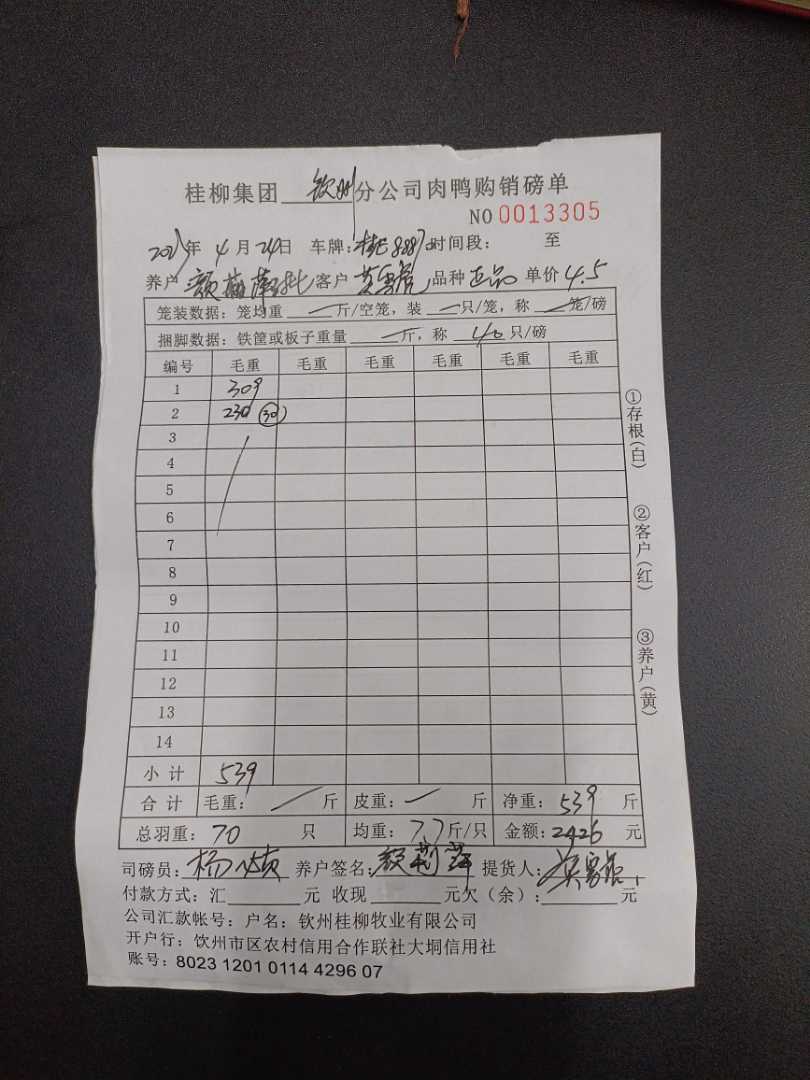 桂柳集团 钦州 分公司肉鸭购销磅单
NO 0013305
年 4 月 24 日 车牌: 时间段: 至
养户 客户 品种 正品 单价 4.5
笼装数据: 笼均重 — 斤/空笼, 装 — 只/笼, 称 — 笼/磅
捆脚数据: 铁筐或板子重量 — 斤, 称 40 只/磅
编号 毛重 毛重 毛重 毛重 毛重 毛重
1 309
2 230 (30)
3
4
5
6
7
8
9
10
11
12
13
14
小计 539
合计 毛重: / 斤 皮重: / 斤 净重: 539 斤
总羽重: 70 只 均重: 7.7 斤/只 金额: 2426 元
司磅员: 杨 养户签名: 提货人:
付款方式: 汇 元 收现 元欠(余): 元
公司汇款帐号: 户名: 钦州桂柳牧业有限公司
开户行: 钦州市区农村信用合作联社大垌信用社
账号: 8023 1201 0114 4296 07
①存根(白)
②客户(红)
③养户(黄)